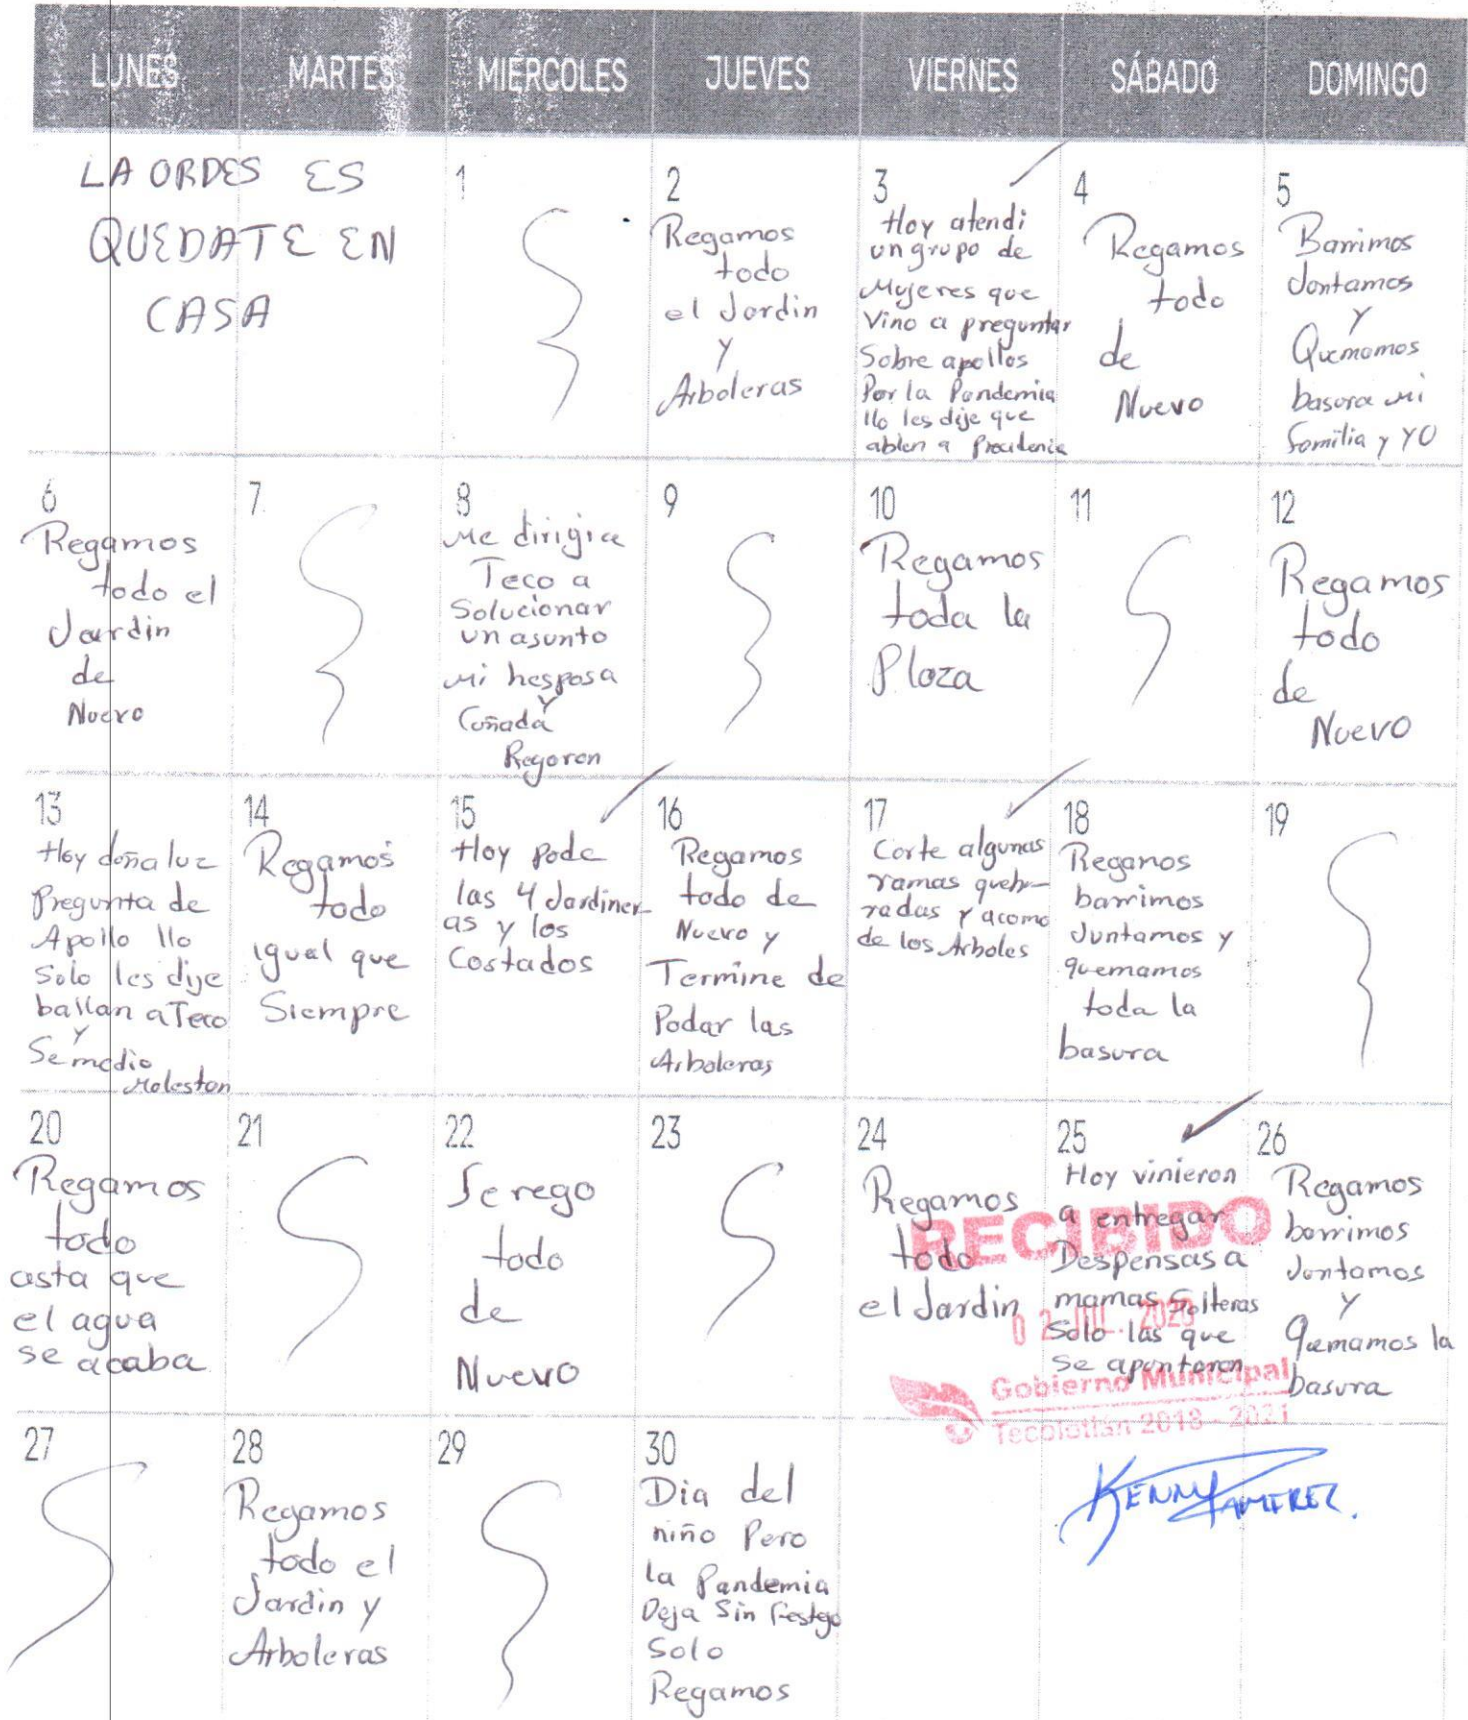 LUNES MARTES MIERCOLES JUEVES VIERNES SÁBADO DOMINGO
LA ORDES ES
QUEDATE EN
CASA
1
2
Regamos
todo
el Jardin
y
Arboleras
3
Hoy atendi
un grupo de
Mujeres que
Vino a preguntar
Sobre apollos
Por la Pandemia
llo les dije que
ablen a
4
Regamos
todo
de
Nuevo
5
Barrimos
Jontamos
y
Quemamos
basura mi
familia y YO
6
Regamos
todo el
Jardin
de
Nuevo
7
8
Me dirigi a
Teco a
Solucionar
un asunto
mi hesposa
y
Coñada
Regaron
9
10
Regamos
toda la
Plaza
11
12
Regamos
todo
de
Nuevo
13
Hoy doña luz
Pregunta de
Apollo llo
Solo les dije
ballan a Teco
y
Se medio
Molestan
14
Regamos
todo
igual que
Siempre
15
Hoy pode
las 4 Jardiner
as y los
Costados
16
Regamos
todo de
Nuevo y
Termine de
Podar las
Arboleras
17
Corte algunas
ramas queb-
radas y acomo
de los Arboles
18
Reganos
barrimos
Juntamos y
quemamos
toda la
basura
19
20
Regamos
todo
asta que
el agua
se acaba
21
22
Se rego
todo
de
Nuevo
23
24
Regamos
todo
el Jardin
25
Hoy vinieron
a entregar
Despensas a
mamas Solteras
Solo las que
Se apontaron
26
Regamos
barrimos
Jontamos
y
quemamos la
basura
RECIBIDO
02 JUL. 2020
Gobierno Municipal
Tecolotlán 2018 - 2021
27
28
Regamos
todo el
Jardin y
Arboleras
29
30
Dia del
niño Pero
la Pandemia
Deja Sin festejo
Solo
Regamos
KENNY RAMIREZ.